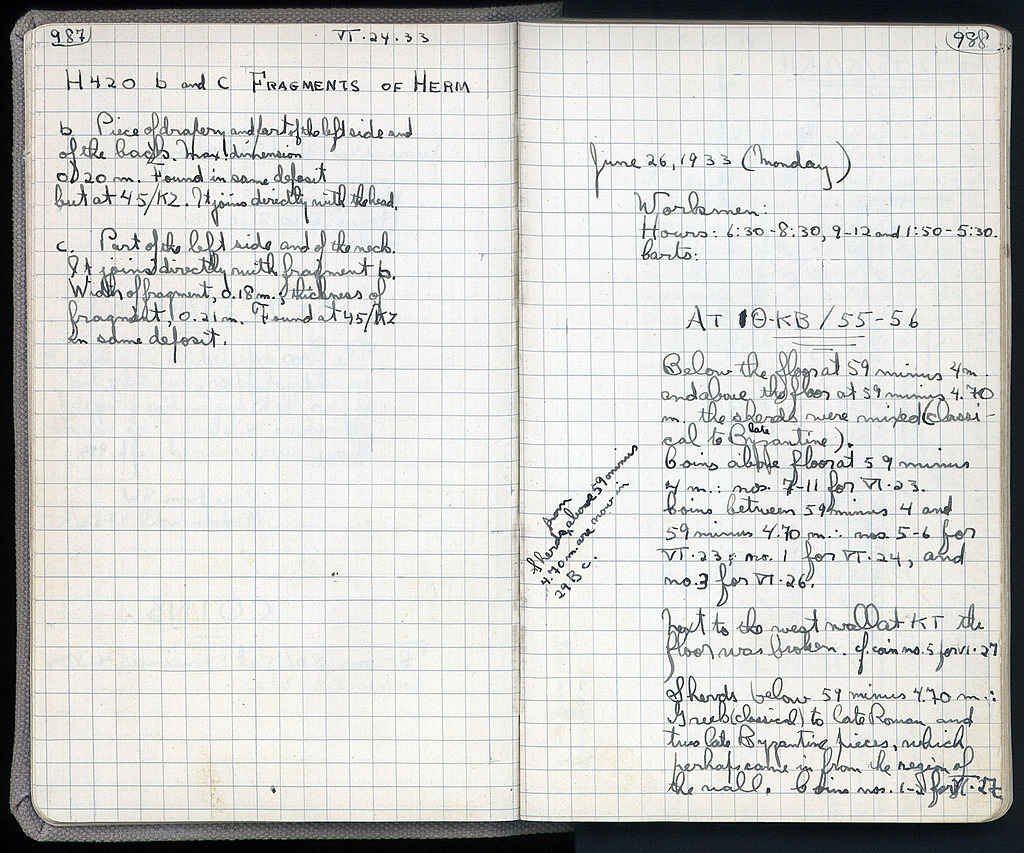 987
VI·24·33
H420 b and c FRAGMENTS OF HERM
b Piece of drapery and part of the left side and
of the back. Max. dimension
0.20 m. Found in same deposit
but at 45/KZ. It joins directly with the head.
c. Part of the left side and of the neck.
It joins directly with fragment b.
Width of fragment, 0.18 m.; thickness of
fragment, 0.21 m. Found at 45/KZ
in same deposit.
988
June 26, 1933 (Monday)
Workmen:
Hours: 6:30-8:30, 9-12 and 1:50-5:30.
Carts:
AT IΘ-KB/55-56
Below the floor at 59 minus 4 m.
and above the floor at 59 minus 4.70
m. the sherds were mixed (classi-
cal to late Byzantine).
Coins above floor at 59 minus
4 m.: nos. 7-11 for VI·23.
Coins between 59 minus 4 and
59 minus 4.70 m.: nos. 5-6 for
VI·23; no. 1 for VI·24, and
no. 3 for VI·26.
Sherds from above 59 minus
4.70 m are now in
29 B c.
Next to the west wall at KT the
floor was broken. cf. coin no. 5 for VI·27
Sherds below 59 minus 4.70 m.:
Greek (classical) to late Roman and
two late Byzantine pieces, which
perhaps came in from the region of
the wall. Coins nos. 1-2 for VI·27